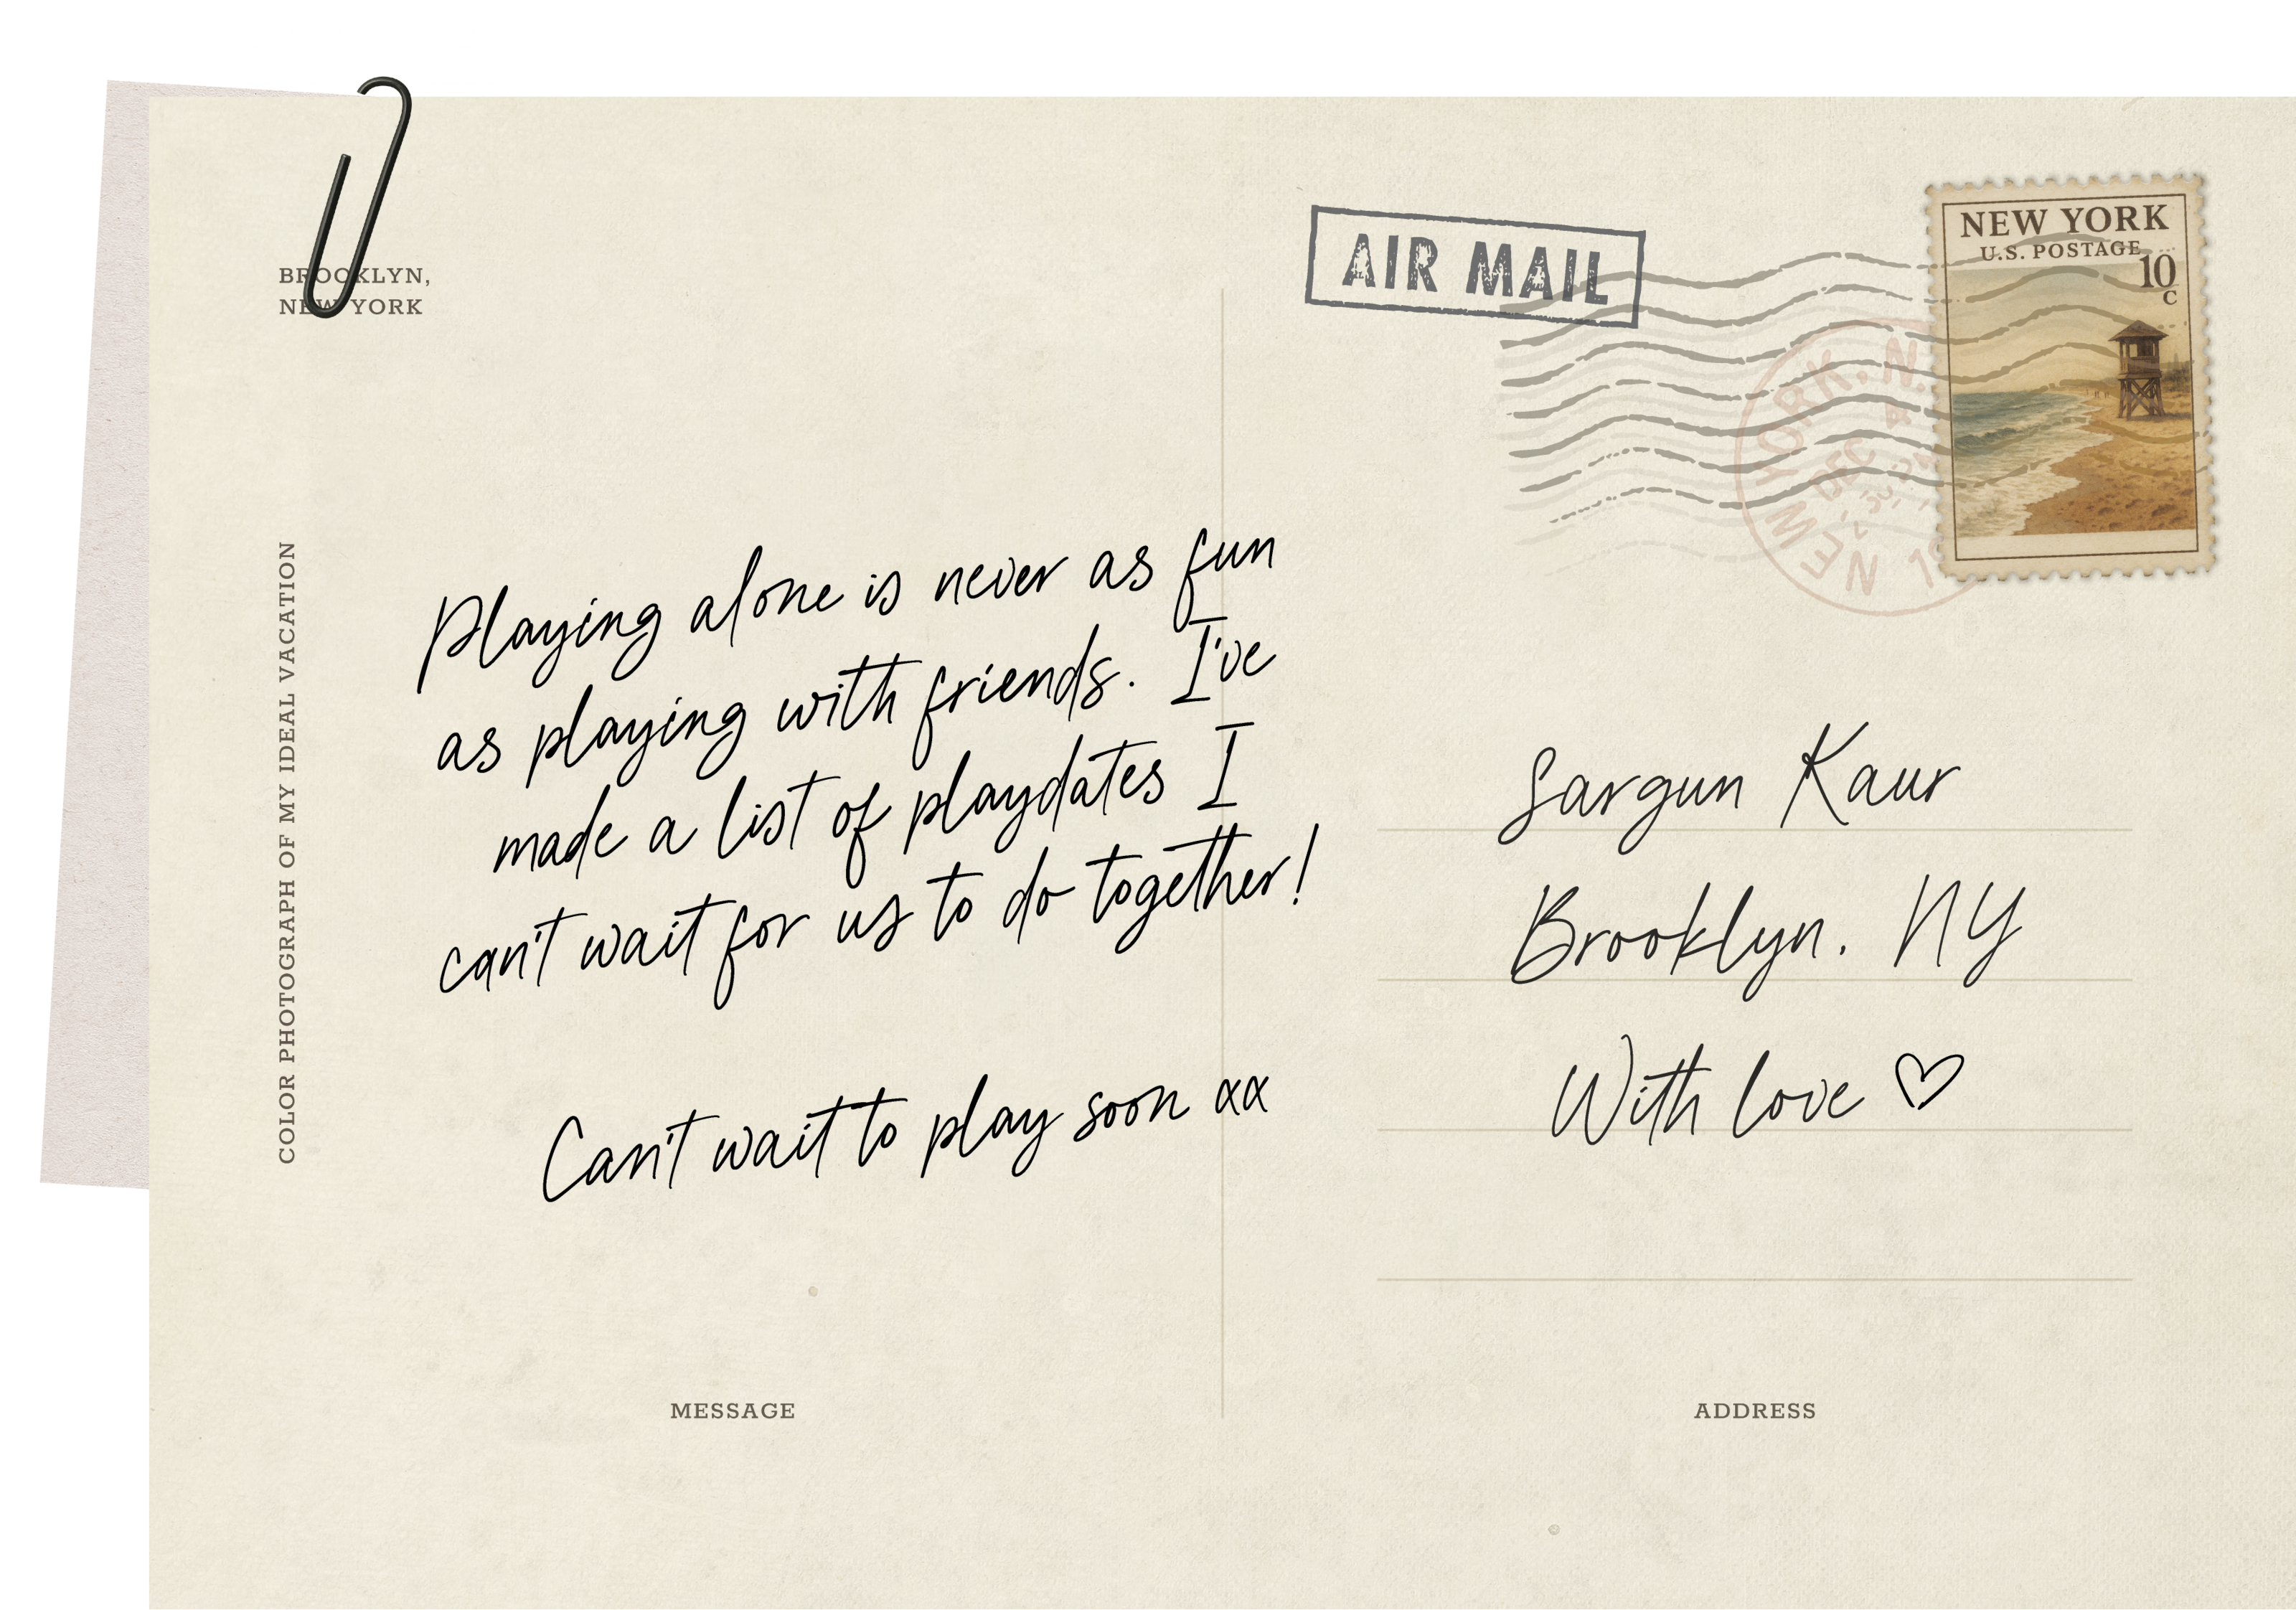 BROOKLYN,
NEW YORK
COLOR PHOTOGRAPH OF MY IDEAL VACATION
Playing alone is never as fun
as playing with friends. I've
made a list of playdates I
can't wait for us to do together!
Can't wait to play soon xx
MESSAGE
AIR MAIL
NEW YORK, N.
DEC 4
NEW YORK
U.S. POSTAGE
10
C
Sargun Kaur
Brooklyn. NY
With love ♡
ADDRESS